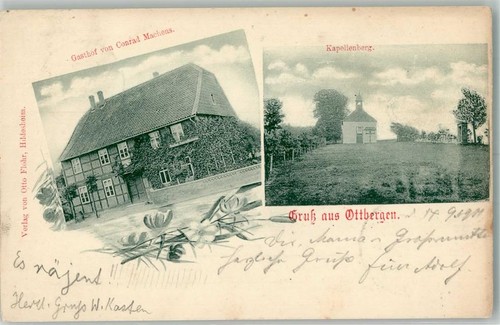 Gasthof von Conrad Machens.
Kapellenberg.
Verlag von Otto Flohr, Hildesheim.
Gruß aus Ottbergen.
Mama
Großmutter
herzliche Grüße für Adolf
Es näjent!!
Herzl. Gruss W. Kasten